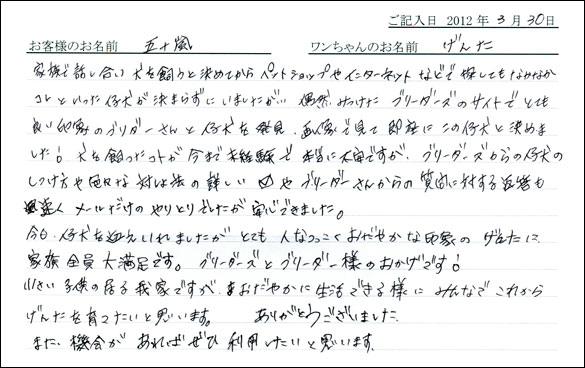 ご記入日 2012 年 3 月 30 日
お客様のお名前 五十嵐 ワンちゃんのお名前 げんた
家族で話し合い 犬を飼うと決めてから ペットショップやインターネットなどで探してもなかなか
コレといった仔犬が決まらずにいましたが… 偶然みつけた ブリーダーズのサイトでとても
良い印象のブリーダーさんと仔犬を発見、画像で見て 即座に この仔犬と決めま
した! 犬を飼ったコトが今まで未経験で 本当に不安ですが、ブリーダーズからの仔犬の
しつけ方や色々な対処法の詳しい やブリーダーさんからの質問に対する返答も
メールだけのやりとりでしたが 安心できました。
今日、仔犬を迎えいれましたが とても 人なつっこく おだやかな印象の げんたに
家族全員 大満足です。 ブリーダーズとブリーダー様のおかげです!
小さい子供の居る我家ですが、おだやかに生活できる様に みんなで これから
げんたを育てたいと思います。 ありがとうございました
また、機会が あればぜひ 利用したいと思います。